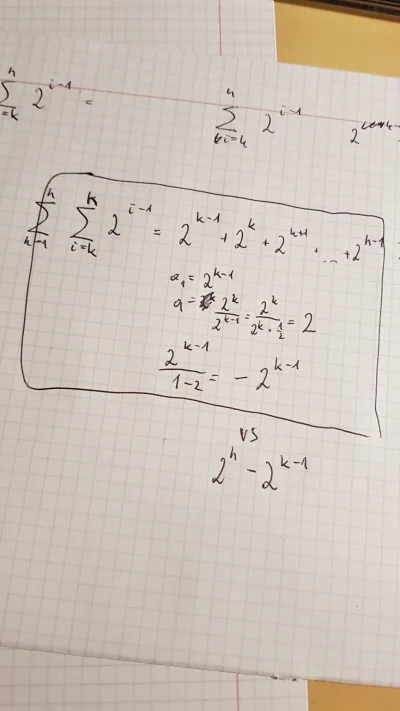 ∑_{=k}^{n} 2^{i-1} =
∑_{i=k}^{n} 2^{i-1}
∑^{n} ∑_{i=k}^{k} 2^{i-1} = 2^{k-1} + 2^{k} + 2^{k+1} ... + 2^{n-1}
a_1 = 2^{k-1}
q = 2^{k}/2^{k-1} = 2^{k}/(2^{k} · 1/2) = 2
2^{k-1}/(1-2) = - 2^{k-1}
vs
2^{n} - 2^{k-1}